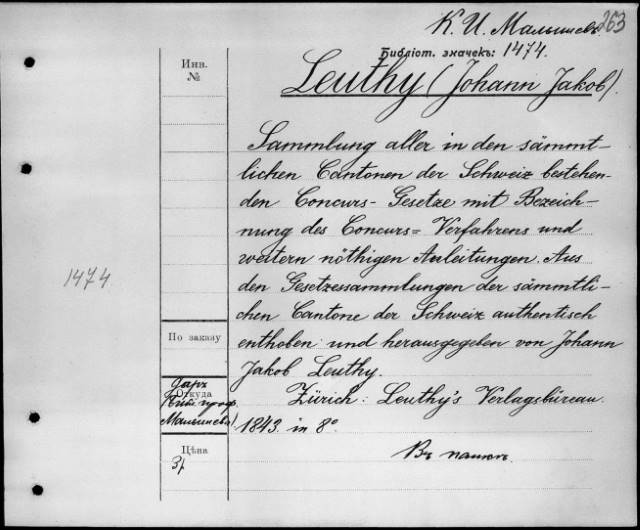 К. И. Малышевъ. 263
Библіот. значекъ: 1474.
Инв. №
Leuthy (Johann Jakob).
Sammlung aller in den sämmt-
lichen Cantonen der Schweiz bestehen-
den Concurs-Gesetze mit Bezeich-
nung des Concurs=Verfahrens und
weitern nöthigen Anleitungen. Aus
den Gesetzessammlungen der sämmtli-
chen Cantone der Schweiz authentisch
enthoben und herausgegeben von Johann
Jakob Leuthy.
Zürich: Leuthy's Verlagsbüreau.
1843. in 8°.
Въ папкѣ.
1474
По заказу
Откуда
Даръ
проф.
Малышева
Цѣна
3р